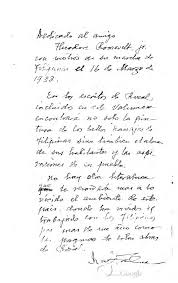 Dedicado al amigo
Theodore Roosevelt, jr.
con motivo de su marcha de
Filipinas el 16 de Marzo de
1933.
En los escritos de Rizal,
incluidos en este volumen
encontrará no solo la pin-
tura de los bellos paisajes de
Filipinas sino tambien el alma
de sus habitantes y las aspi-
raciones de su pueblo.
No hay otra literatura
que le recuerde mas a lo
vivido el ambiente de este
pais donde ha vivido y
trabajado con los filipinos
por mas de un año como
las paginas de estas obras
de Rizal.
Google